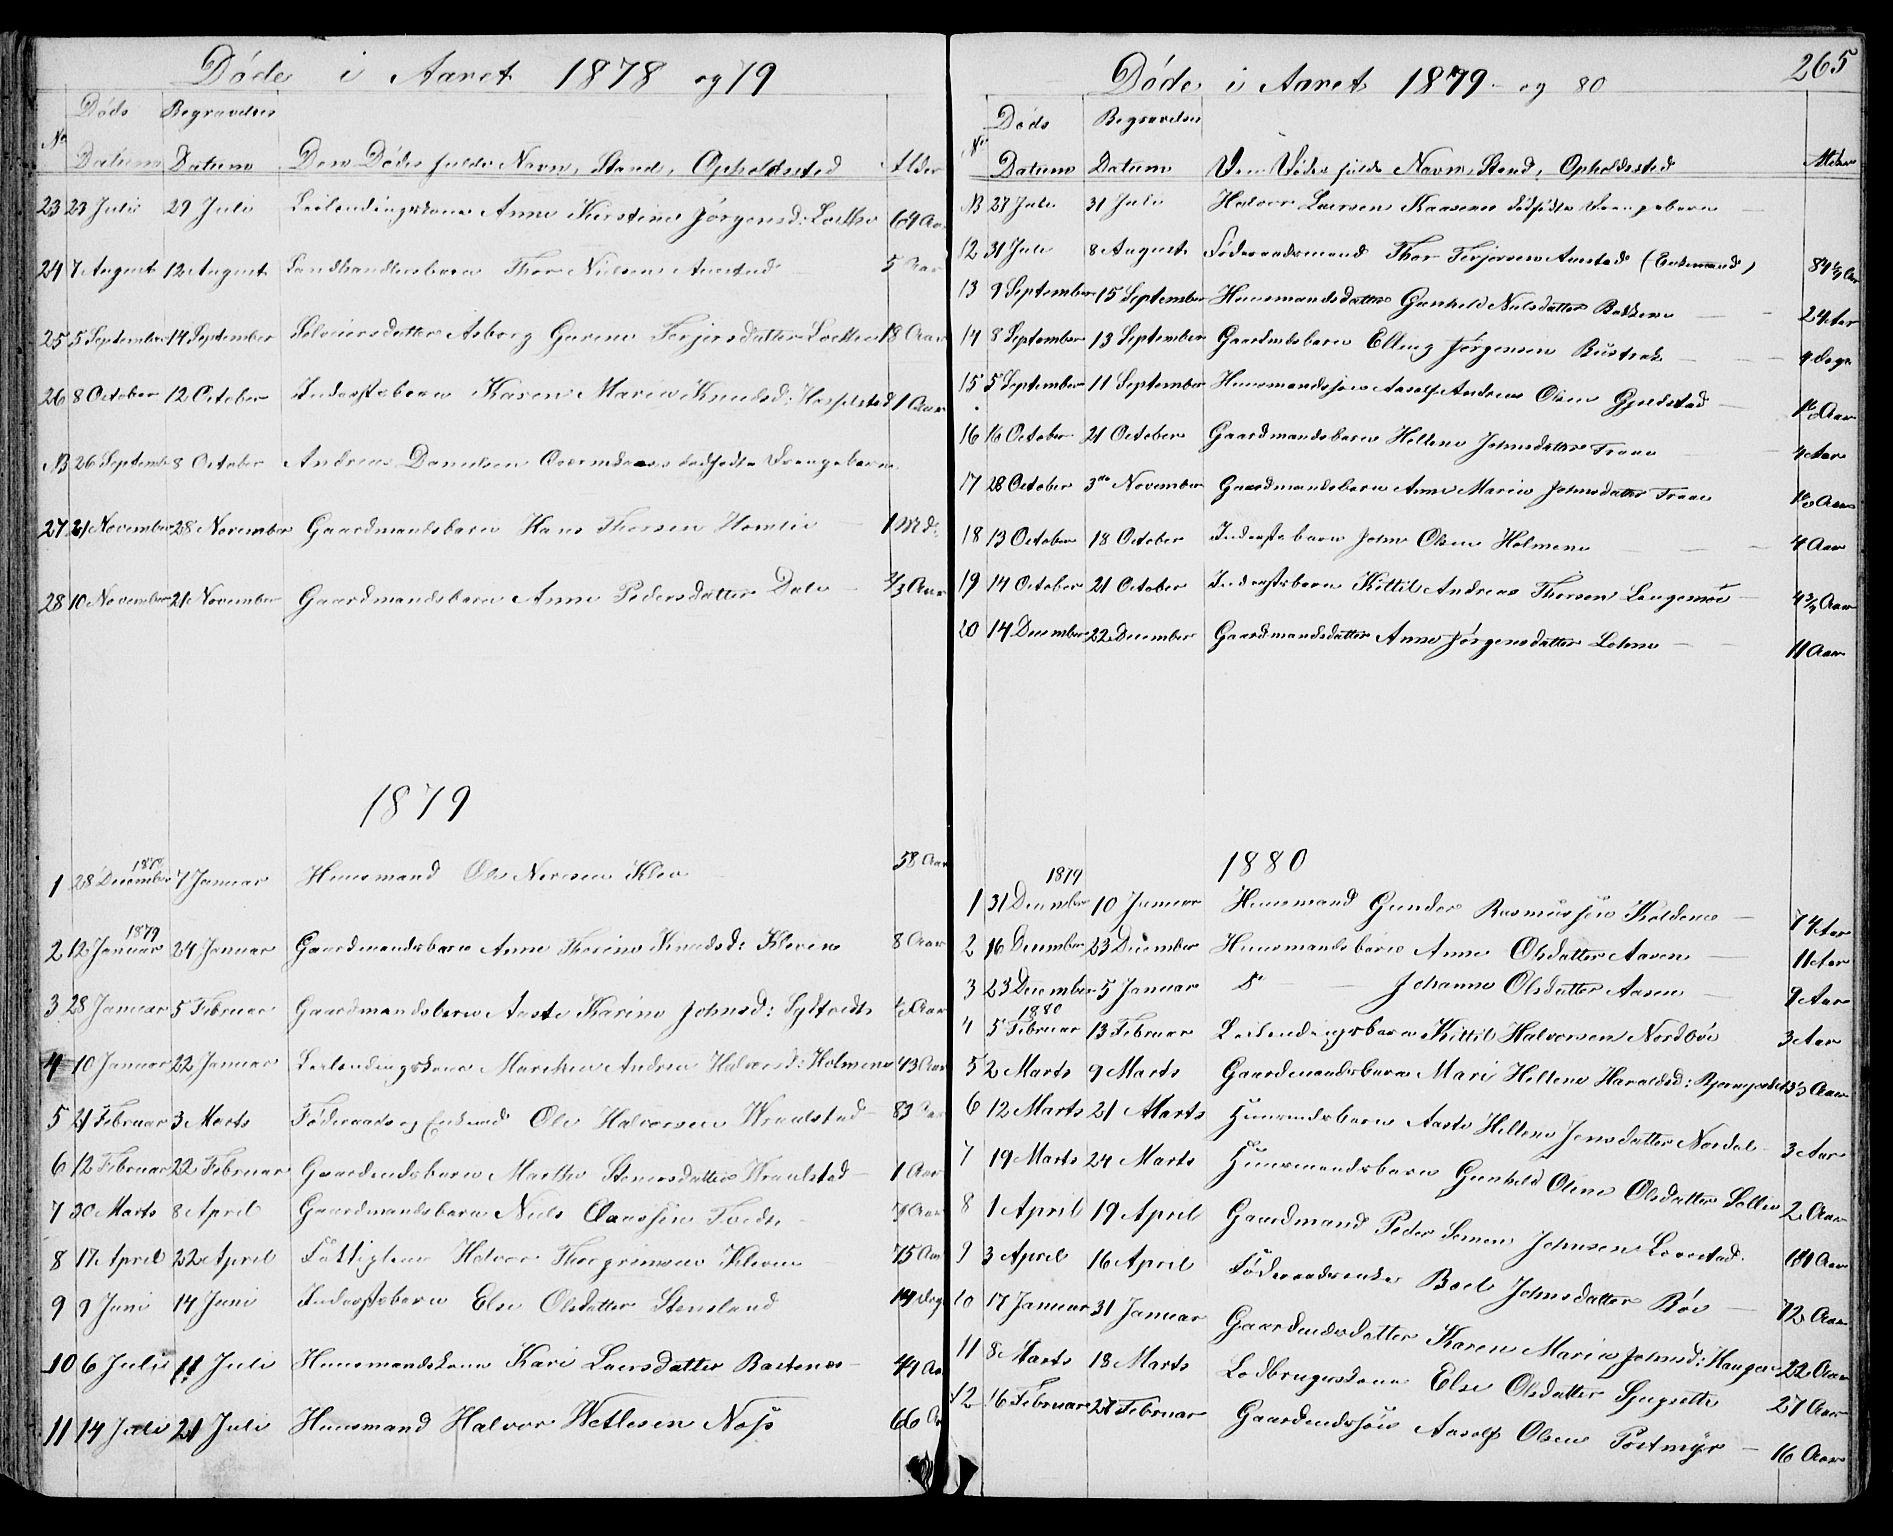 Døde i Aaret 1878 og 79
Døds Begravelses
No Datum Datum Den Dødes fulde Navn, Stand, Opholdssted Alder
23 23 Juli 29 Juli Leilendingskone Anne Kirstine Jørgensd: 69 Aar
24 7 August 12 August Landhandlerbarn Thor Nielsen 5 Aar
25 5 September 14 September Asborg Gurine Terjersdatter 18 Aar
26 8 October 12 October Inderstsbarn Karen Marie Knudsd: 1 Aar
NB 26 Septemb 8 October Andreas Danielsen dødfødte Drengebarn
27 21 November 28 November Gaardmandsbarn Hans Thorsen Homlie 1 Md:
28 10 November 21 November Gaardmandsbarn Anne Pedersdatter Dale 2/3 Aar
1879
1 28 December 1878 7 Januar Huusmand Ole Klev 58 Aar
2 12 Januar 1879 24 Januar Gaardmandsbarn Anne Thorine Knudsd: Kleven 8 Aar
3 28 Januar 5 Februar Gaardmandsbarn Aaste Karine Johnsd: Aar
4 10 Januar 22 Januar Leilendingskone Marthea Andrea Halvorsd: Holmene 43 Aar
5 21 Februar 3 Marts Føderaads og Enkemd Ole Halvorsen Wraalstad 83 Aar
6 12 Februar 22 Februar Gaardmdsbarn Marthe Stenersdatter Wraalstad 1 Aar
7 30 Marts 8 April Gaardmandsbarn Niels Claussen Tveder Aar
8 17 April 22 April Fattiglem Halvor Thorgrimsen Kleven 75 Aar
9 9 Juni 14 Juni Inderstsbarn Else Olsdatter Stensland 14 Dage
10 6 Juli 11 Juli Huusmandskone Kari Laersdatter 49 Aar
11 14 Juli 21 Juli Huusmand Halvor Wetlesen Næss 66
265
Døde i Aaret 1879 og 80
Døds Begravelses
No Datum Datum Den Dødes fulde Navn, Stand, Opholdssted Alder
NB 27 Juli 31 Juli Halvor Laersen Kaasene dødfødte Drengebarn
12 31 Juli 8 August Føderaadsmand Thor Terjersen (Enkemand) 84 1/4 Aar
13 9 September 15 September Huusmandsdatter Gunhild Nielsdatter Bakken 24 Aar
14 8 September 13 September Gaardmdsbarn Elling Jørgensen Bustrak 4 Dage
15 5 September 11 September Huusmandssøn Aasolf Andreas Olsen Gjeldstad Aar
16 16 October 21 October Gaardmandsbarn Hellene Johnsdatter Traae 4 Aar
17 28 October 3die November Gaardmandsbarn Anne Marie Johnsdatter Traae Aar
18 13 October 18 October Inderstsbarn John Olsen Holmene 4 Aar
19 14 October 21 October Inderstsbarn Kittil Andreas Thorsen Langemoe 4 3/4 Aar
20 14 December 22 December Gaardmandsdatter Anne Jørgensdatter Lohne 11 Aar
1880
1 31 December 1879 10 Januar Huusmand Gunder Rasmussen Koldene 74 Aar
2 16 December 23 December Huusmandsbarn Anne Olsdatter Aasen 11 Aar
3 23 December 5 Januar do Johanne Olsdatter Aasen 9 Aar
4 5 Februar 1880 13 Februar Leilendingsbarn Kittil Halvorsen Nordbøe 3 Aar
5 2 Marts 9 Marts Gaardmandsbarn Mari Hellene Haraldsd: Aar
6 12 Marts 21 Marts Huusmdsbarn Aaste Hellene Jensdatter Nordal 3 Aar
7 19 Marts 24 Marts Huusmandsbarn Gunhild Oline Olsdatter Sollie 2 Aar
8 1 April 19 April Gaardmand Peder Semen Johnsen Aar
9 3 April 16 April Føderaadsenke Boel Johnsdatter Bøe 72 Aar
10 17 Januar 31 Januar Gaardmdsdatter Karen Marie Johnsd: Haugen 22 Aar
11 8 Marts 18 Marts Lodbrugerkone Else Olsdatter 27 Aar
12 16 Februar 27 Februar Gaardmdssøn Aasolf Olsen Postmyr 16 Aar